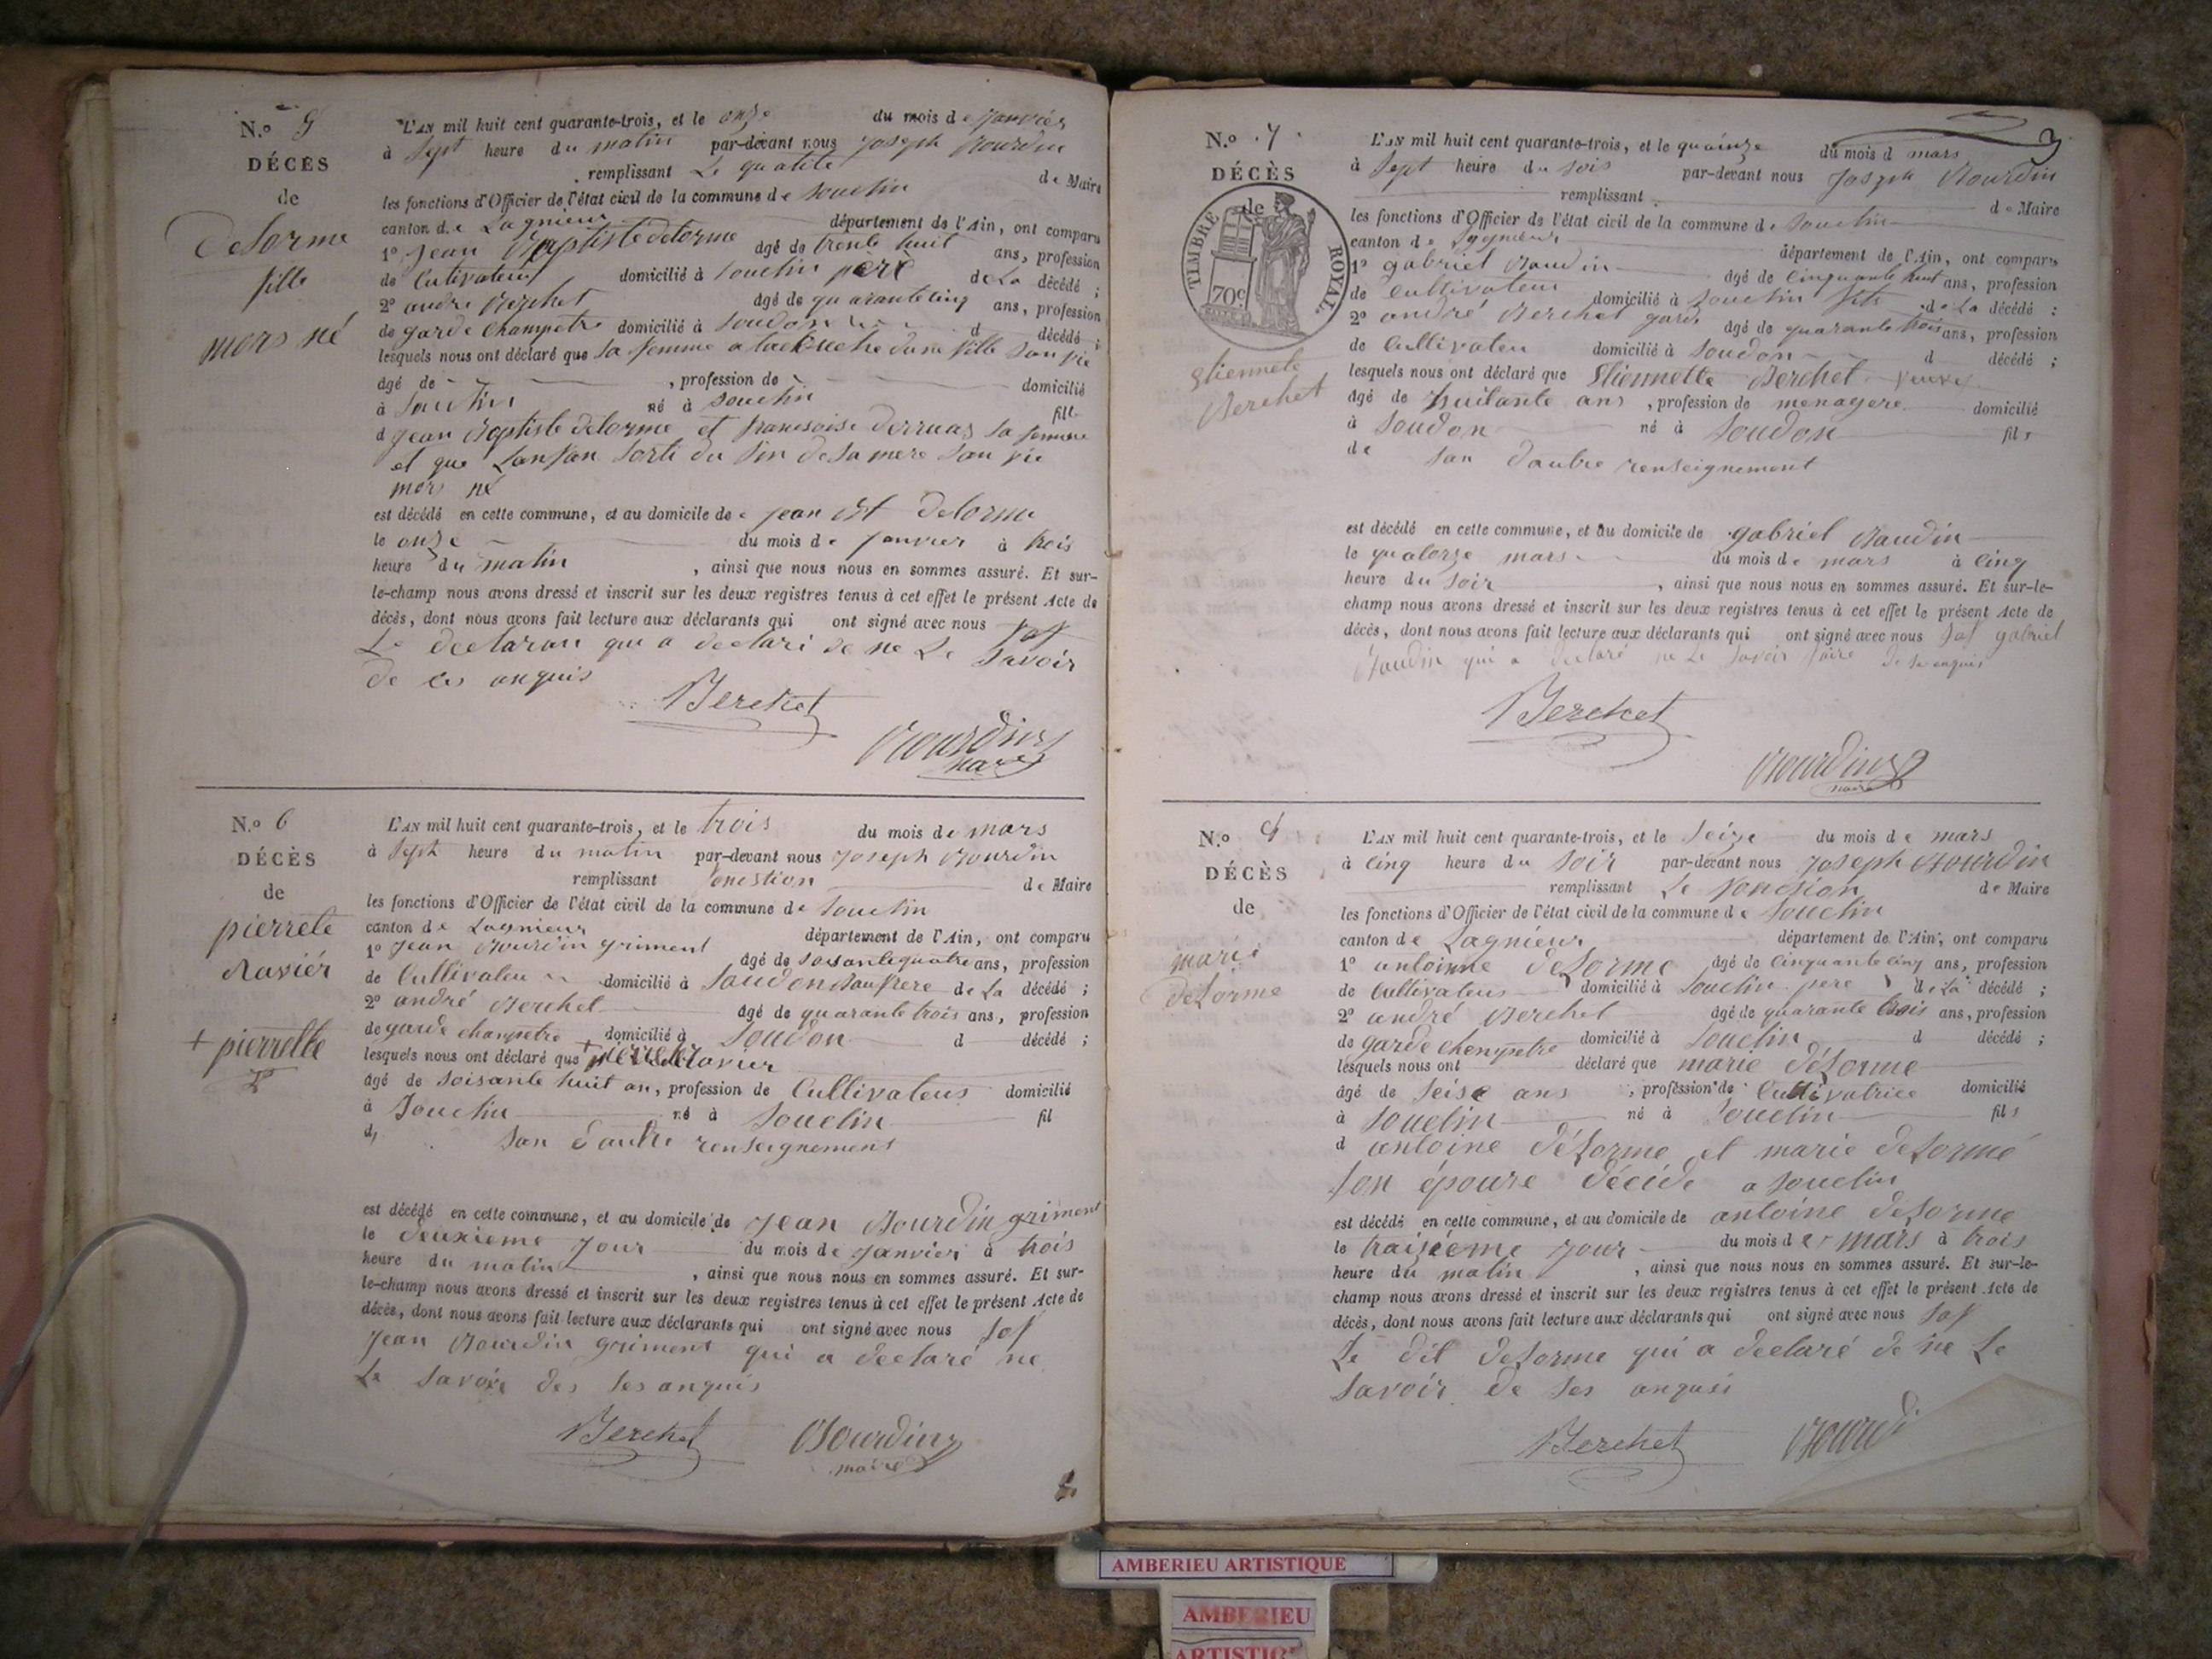 N.o 5
DÉCÈS
de
delorme
fille
mors né
L'AN mil huit cent quarante-trois, et le onze du mois de janvier
à sept heure du matin par-devant nous joseph Bourdin
remplissant Le qualité de Maire
les fonctions d'Officier de l'état civil de la commune de souclin
canton de Lagnieur département de l'Ain, ont comparu
1º jean Baptiste delorme âgé de trente huit ans, profession
de Cultivateur domicilié à souclin père de La décédé ;
2º andré Berchet âgé de quarante cinq ans, profession
de garde Champetre domicilié à soudon d décédé ;
lesquels nous ont déclaré que sa femme a dune fille san vie
âgé de , profession de domicilié
à souclin né à souclin fille
d jean Baptiste delorme et francoise sa femme
et que Lanfan sorti du sin de sa mere san vie
mors né
est décédé en cette commune, et au domicile de jean Bt delorme
le onze du mois de janvier à trois
heure du matin , ainsi que nous nous en sommes assuré. Et sur-
le-champ nous avons dressé et inscrit sur les deux registres tenus à cet effet le présent Acte de
décès, dont nous avons fait lecture aux déclarants qui ont signé avec nous sof
Le declaran qui a declari de ne Le savoir
de ces anquis
Berchet
Bourdin
maire
N.o 6
DÉCÈS
de
pierrete
Ravier
+ pierrette
L'AN mil huit cent quarante-trois, et le trois du mois de mars
à sept heure du matin par-devant nous joseph Bourdin
remplissant fonction de Maire
les fonctions d'Officier de l'état civil de la commune de souclin
canton de Lagnieur département de l'Ain, ont comparu
1º jean Bourdin griment âgé de soisante quatre ans, profession
de Cultivateu domicilié à soudon beau frere de La décédé ;
2º andré Berchet âgé de quarante trois ans, profession
de garde champetre domicilié à soudon d décédé ;
lesquels nous ont déclaré que + Ravier
âgé de soisante huit an, profession de Cultivateus domicilié
à souclin né à souclin fil
d san dautre renseignement
est décédé en cette commune, et au domicile de jean Bourdin griment
le deuxieme jour du mois de janvier à trois
heure du matin , ainsi que nous nous en sommes assuré. Et sur-
le-champ nous avons dressé et inscrit sur les deux registres tenus à cet effet le présent Acte de
décès, dont nous avons fait lecture aux déclarants qui ont signé avec nous sof
jean Bourdin griment qui a declaré ne
Le savoir des ses anquis
Berchet Bourdin
maire
N.o 7
DÉCÈS
de
TIMBRE ROYAL
70c
Etiennete
Berchet
L'AN mil huit cent quarante-trois, et le quainze du mois d mars
à sept heure du sois par-devant nous joseph Bourdin
remplissant de Maire
les fonctions d'Officier de l'état civil de la commune de souclin
canton de Lagnieur département de l'Ain, ont comparu
1º gabriel Baudin âgé de cinquante huit ans, profession
de Cultivateur domicilié à souclin fils de La décédé ;
2º andré Berchet garde âgé de quarante trois ans, profession
de Cultivateu domicilié à soudon d décédé ;
lesquels nous ont déclaré que Etiennette Berchet veuve
âgé de huitante ans , profession de menagere domicilié
à soudon né à soudon fils
de san dautre renseignement
est décédé en cette commune, et au domicile de gabriel Baudin
le quatorze mars du mois de mars à cinq
heure du soir , ainsi que nous nous en sommes assuré. Et sur-le-
champ nous avons dressé et inscrit sur les deux registres tenus à cet effet le présent Acte de
décès, dont nous avons fait lecture aux déclarants qui ont signé avec nous sof gabriel
Baudin qui a declaré ne Le savoir faire de se enquis
Berchet
Bourdin
maire
N.o
DÉCÈS
de
marie
delorme
L'AN mil huit cent quarante-trois, et le seize du mois de mars
à cinq heure du soir par-devant nous joseph Bourdin
remplissant Le foncsion de Maire
les fonctions d'Officier de l'état civil de la commune de souclin
canton de Lagnieur département de l'Ain, ont comparu
1º antoinne delorme âgé de cinquante cinq ans, profession
de Cultivateus domicilié à souclin pere de La décédé ;
2º andré Berchet âgé de quarante trois ans, profession
de garde chempetre domicilié à souclin d décédé ;
lesquels nous ont déclaré que marie délorme
âgé de seise ans , profession de Cultivatrice domicilié
à souclin né à souclin fils
d antoine délorme et marie delorme
son épouse décéde a souclin
est décédé en cette commune, et au domicile de antoine delorme
le traisieme jour du mois de mars à trois
heure du matin , ainsi que nous nous en sommes assuré. Et sur-le-
champ nous avons dressé et inscrit sur les deux registres tenus à cet effet le présent Acte de
décès, dont nous avons fait lecture aux déclarants qui ont signé avec nous sof
Le dit delorme qui a declaré de ne Le
savoir de ses anquis
Berchet Bourdi
AMBERIEU ARTISTIQUE
AMBERIEU
ARTISTIQ